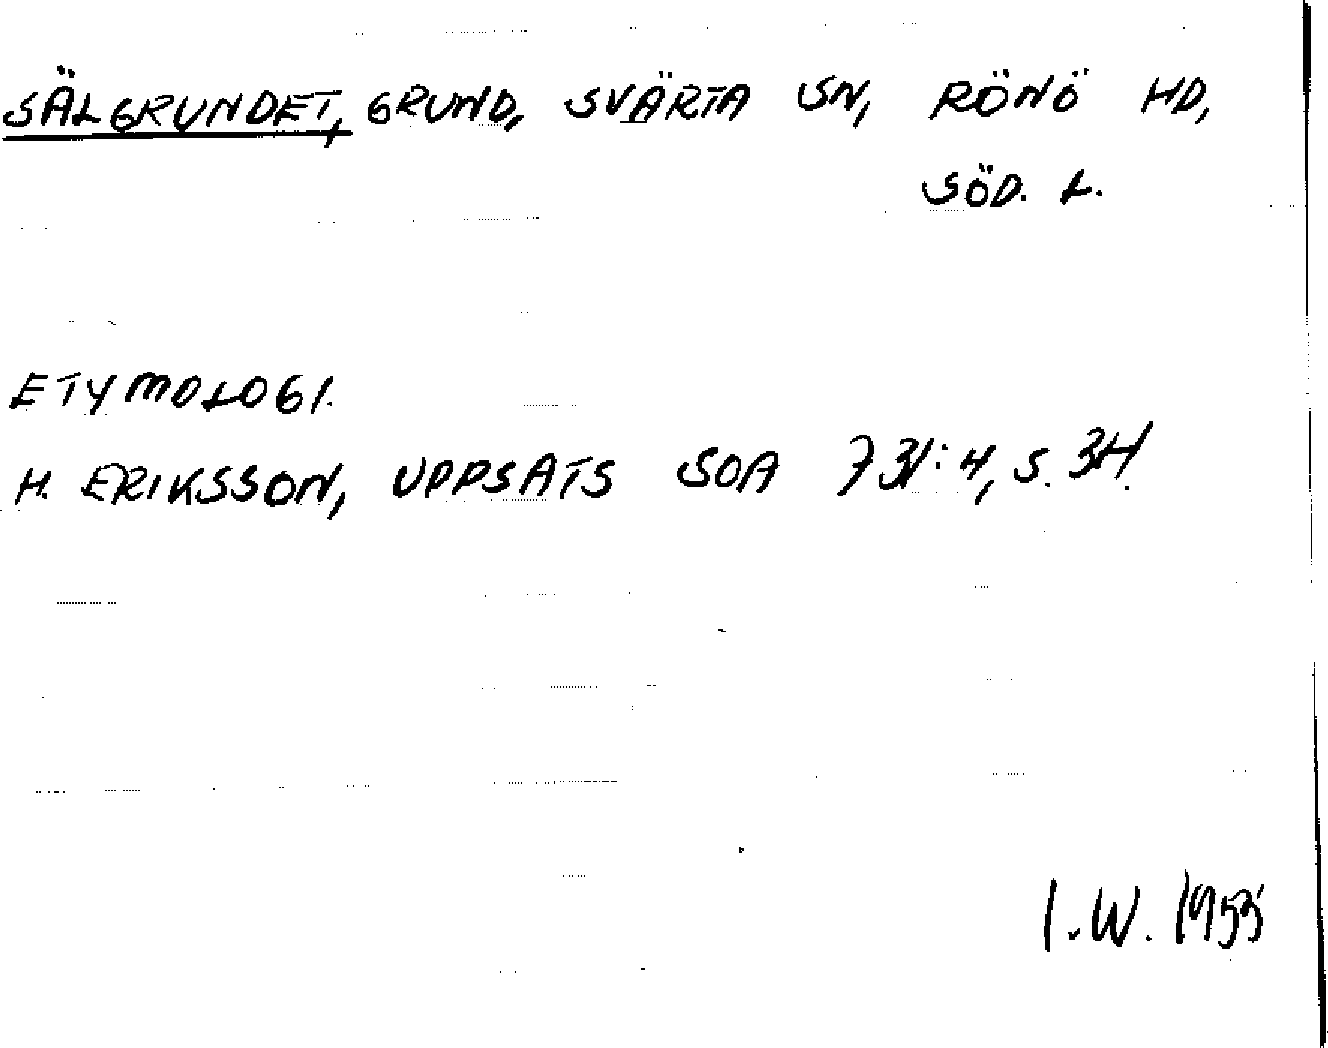 SÄLGRUNDET, GRUND, SVÄRTA SN, RÖNÖ HD,
SÖD. L.
ETYMOLOGI.
H. ERIKSSON, UPPSATS SOA 731:4, S. 34.
I.W. 1955